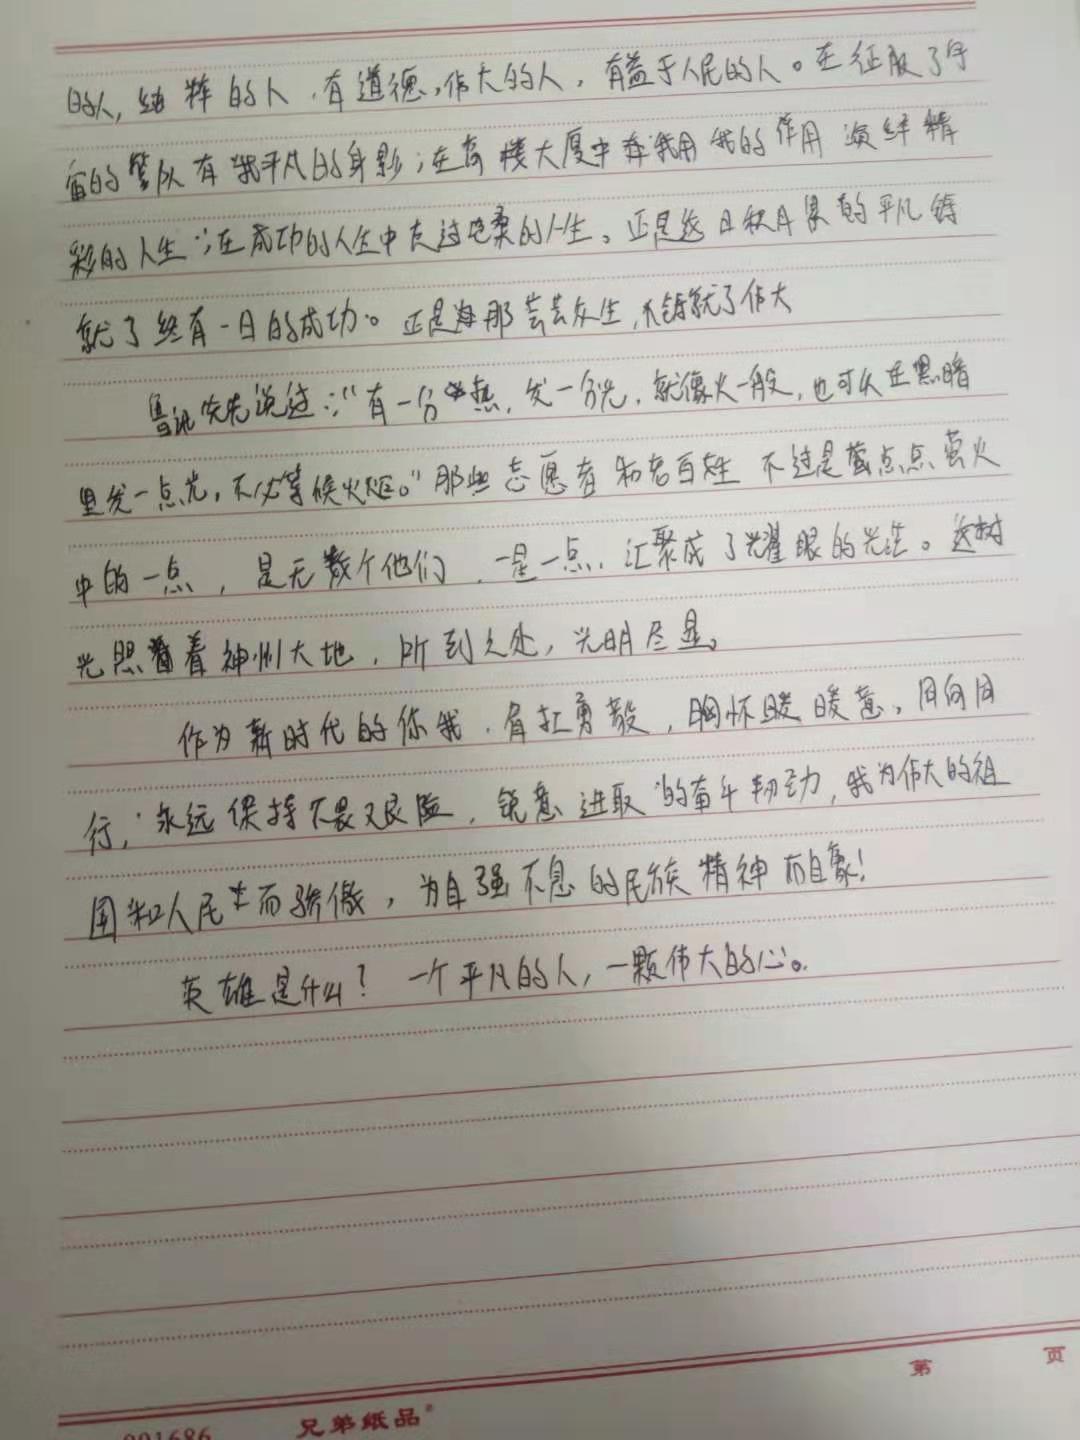 的人,纯粹的人,有道德,伟大的人,有益于人民的人。在征服了宇
宙的队有我平凡的身影;在高楼大厦中有我用我的作用演绎精
彩的人生;在成功的人生中走过的人生。正是这日积月累的平凡铸
就了终有一日的成功。正是那芸芸众生,才铸就了伟大
鲁迅先生说过:“有一分热,发一分光,就像火一般,也可以在黑暗
里发一点光,不必等候火炬。”那些志愿者和老百姓不过是点点萤火
中的一点,是无数个他们,一点一点,汇聚成了耀眼的光注。这树
光照着神州大地,所到之处,光明尽显。
作为新时代的你我,肩扛勇毅,胸怀暖意,同向同
行,永远保持不畏艰险,锐意进取的奋斗韧劲,我为伟大的祖
国和人民而骄傲,为自强不息的民族精神而自豪!
英雄是什么?一个平凡的人,一颗伟大的心。
第 页
001686 兄弟紙品